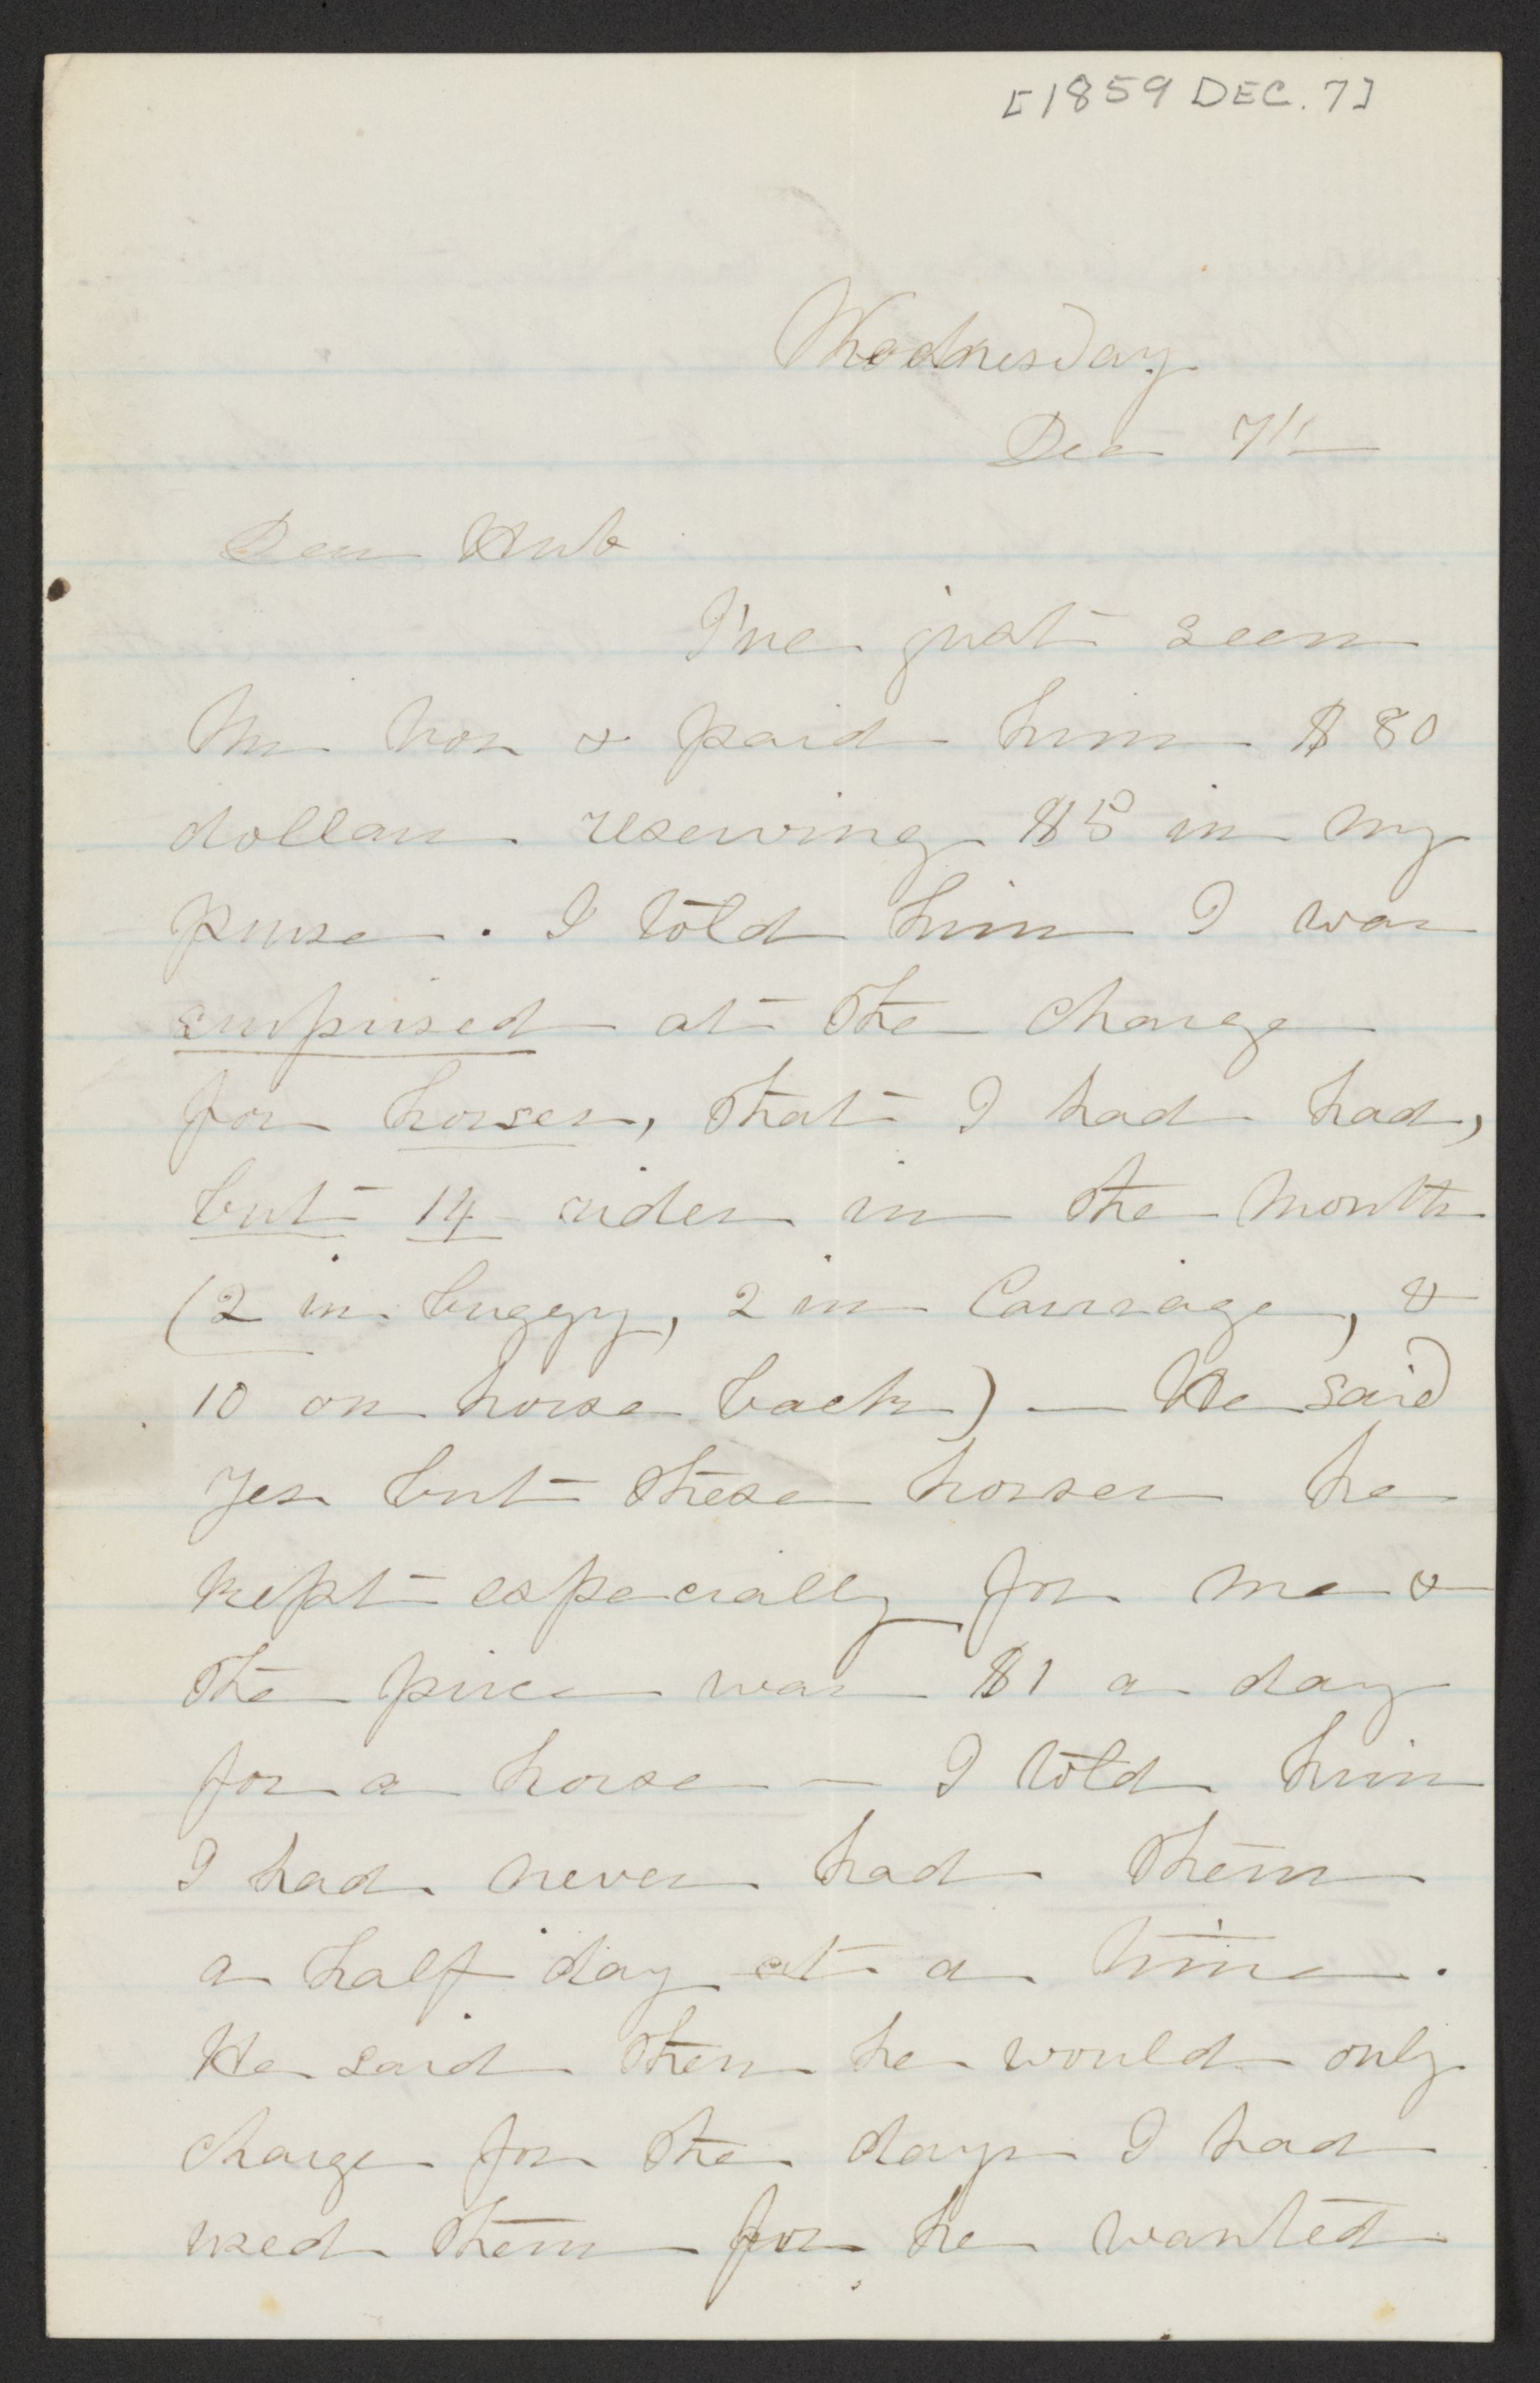 [1859 DEC. 7]
Wednesday
Dec 7th
Dear Hub
I've just seen
Mr & paid him $80
dollars reserving $5 in my
purse. I told him I was
surprised at the charge
for horses, that I had had,
but 14 rides in the month
(2 in buggy, 2 in Carriage, &
10 on horse back) — He said
Yes but these horses he
kept especially for me &
the price was $1 a day
for a horse — I told him
I had never had them
a half day at a time.
He said then he would only
charge for the days I had
used them for he wanted